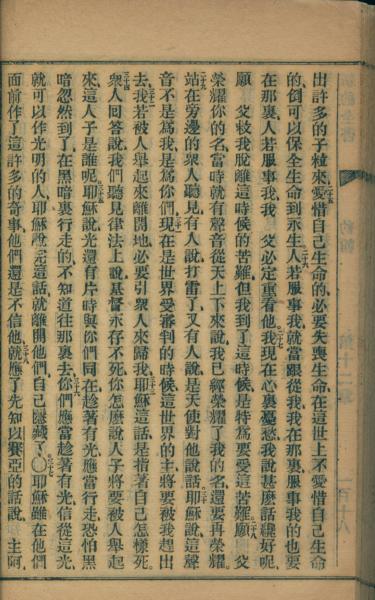 出許多的子粒來愛惜自己生命的必要失喪生命在這世上不愛惜自己生命
的倒可以保全生命到永生人若服事我就當跟從我我在那裏服事我的也要
在那裏人若服事我我　父必定重看他我現在心裏憂愁我說甚麽話纔好呢
願　父救我脫離這時候的苦難但我到了這時候是特爲要受這苦難願　父
榮耀你的名當時就有聲音從天上下來說我已經榮耀了我的名還要再榮耀
站在旁邊的衆人聽見有人說打雷了又有人說是天使對他說話耶穌說這聲
音不是爲我是爲你們現在是世界受審判的時候這世界的主將要被我趕出
去我若被人舉起來離開地必要引衆人來歸我耶穌這話是指著自己怎樣死
衆人回答說我們聽見律法上說基督永存不死你怎麽說人子將要被人舉起
來這人子是誰呢耶穌說光還有片時與你們同在趁著有光應當行走恐怕黑
暗忽然到了在黑暗裏行走的不知道往那裏去你們應當趁著有光信從這光
就可以作光明的人耶穌說完這話就離開他們自己隱藏了〇耶穌雖在他們
面前作了這許多的奇事他們還是不信他就應了先知以賽亞的話說　主阿